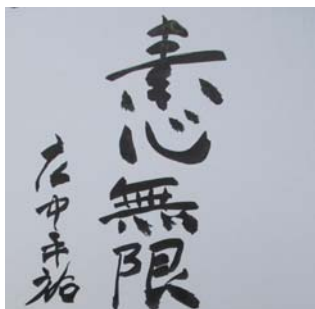 素心無限
広中平祐